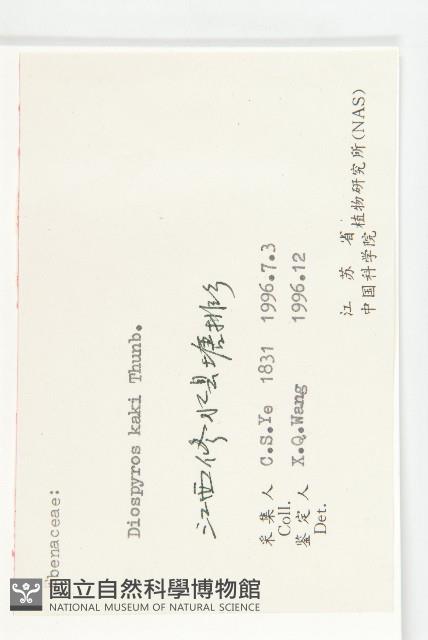 benaceae:
Diospyros kaki Thunb.
江西修水县塘排乡
采集人 C.S.Ye 1831 1996.7.3
Coll.
鉴定人 X.Q.Wang 1996.12
Det.
江苏省植物研究所(NAS)
中国科学院
國立自然科學博物館
NATIONAL MUSEUM OF NATURAL SCIENCE